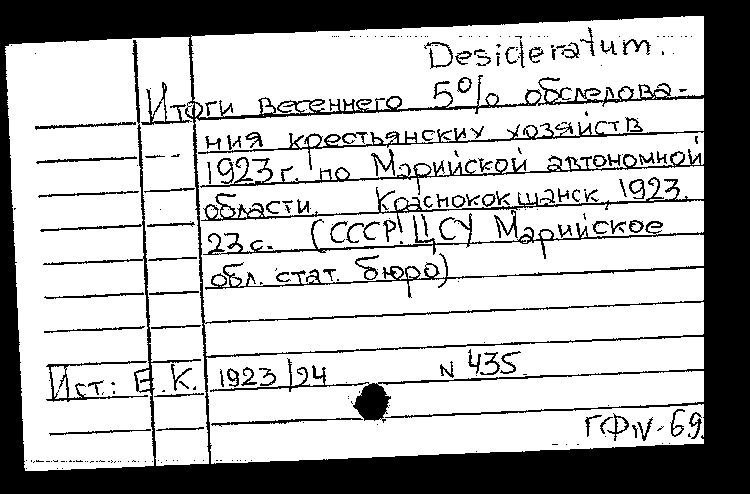 Desideratum.
Итоги весеннего 5% обследова-
ния крестьянских хозяйств
1923 г. по Марийской автономной
области. Краснококшанск, 1923.
23 с. (СССР! ЦСУ Марийское
обл. стат. бюро)
Ист.: Е. К. 1923/24 N 435
ГФIV-69